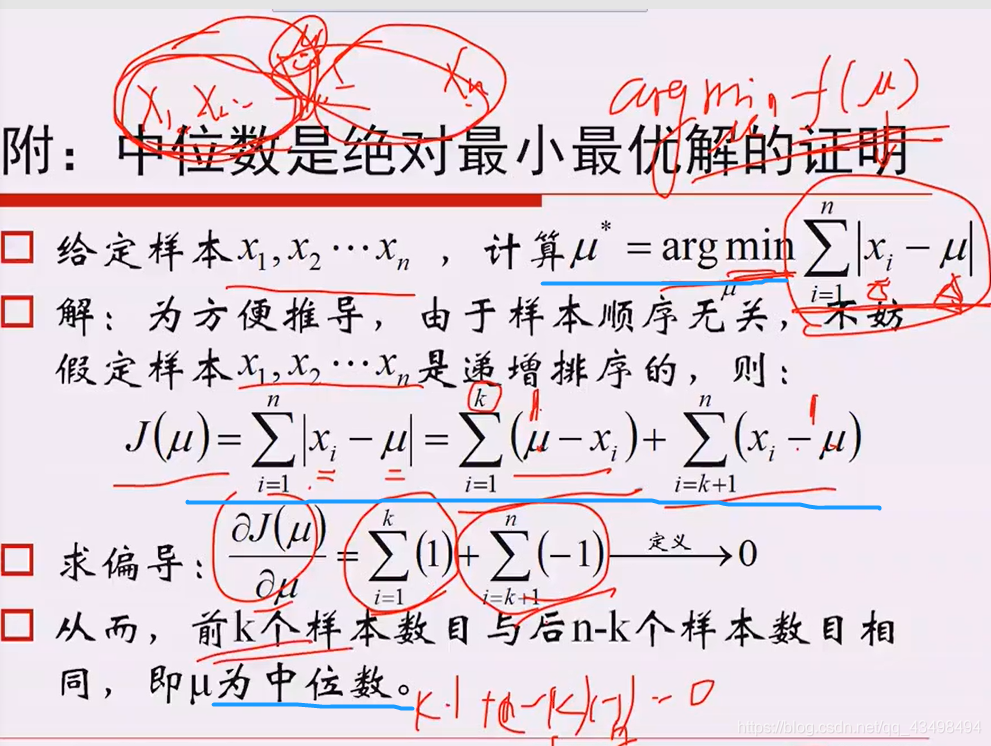 X₁ X₂ ... Xₙ
arg min f(μ)
μ
附：中位数是绝对最小最优解的证明
给定样本x₁,x₂⋯xₙ，计算μ* = arg min_μ ∑_{i=1}^{n} |xᵢ − μ|
解：为方便推导，由于样本顺序无关，不妨
假定样本x₁,x₂⋯xₙ是递增排序的，则：
J(μ) = ∑_{i=1}^{n} |xᵢ − μ| = ∑_{i=1}^{k} (μ − xᵢ) + ∑_{i=k+1}^{n} (xᵢ − μ)
求偏导：∂J(μ)/∂μ = ∑_{i=1}^{k} (1) + ∑_{i=k+1}^{n} (−1) 定义→ 0
从而，前k个样本数目与后n-k个样本数目相
同，即μ为中位数。
k·1 + (n−k)(−1) = 0
https://blog.csdn.net/qq_43498494